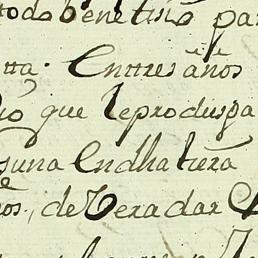 todo benefisio par
tta. Enttres años
io que le produspa
suna En dha tiera
nos, de Vera dar